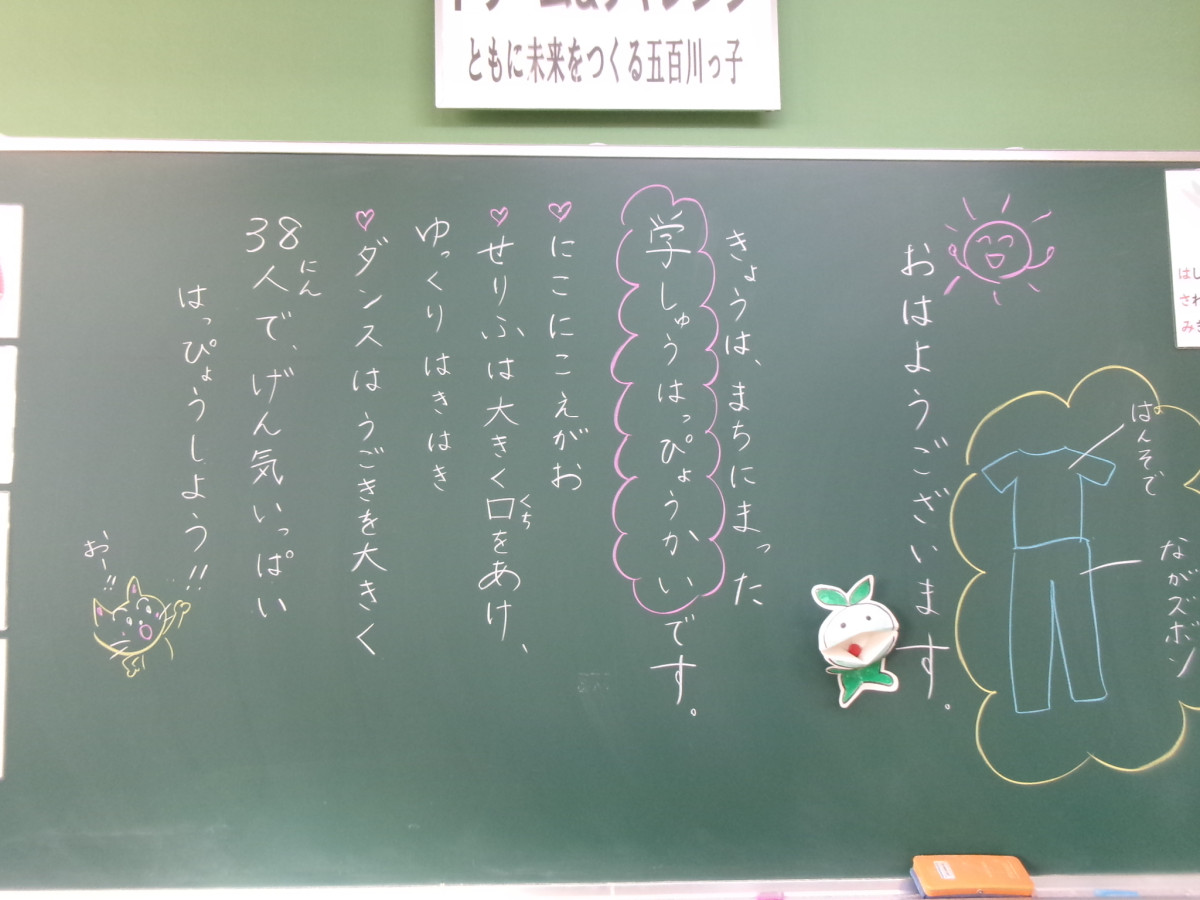 ともに未来をつくる五百川っ子
おはようございます。
はんそで
ながズボン
きょうは、まちにまった
学しゅうはっぴょうかいです。
♡にこにこえがお
♡せりふは大きく口をあけ、
くち
ゆっくりはきはき
♡ダンスはうごきを大きく
38人で、げん気いっぱい
にん
はっぴょうしよう!!
おー!!